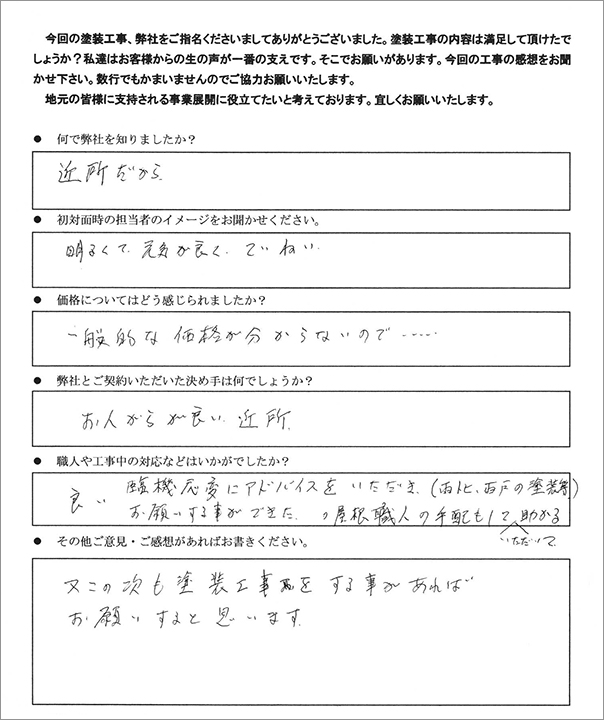 今回の塗装工事、弊社をご指名くださいましてありがとうございました。塗装工事の内容は満足して頂けたで
しょうか？私達はお客様からの生の声が一番の支えです。そこでお願いがあります。今回の工事の感想をお聞
かせ下さい。数行でもかまいませんのでご協力お願いいたします。
地元の皆様に支持される事業展開に役立てたいと考えております。宜しくお願いいたします。
● 何で弊社を知りましたか？
近所だから
● 初対面時の担当者のイメージをお聞かせください。
明るくて、元気が良く、ていねい
● 価格についてはどう感じられましたか？
一般的な価格が分からないので……
● 弊社とご契約いただいた決め手は何でしょうか？
お人がらが良い、近所
● 職人や工事中の対応などはいかがでしたか？
良い 臨機応変にアドバイスをいただき、(雨トヒ、雨戸の塗装等)
お願いする事ができた。 屋根職人の手配もして助かる
いただいて
● その他ご意見・ご感想があればお書きください。
又この次も塗装工事をする事があれば
お願いすると思います。